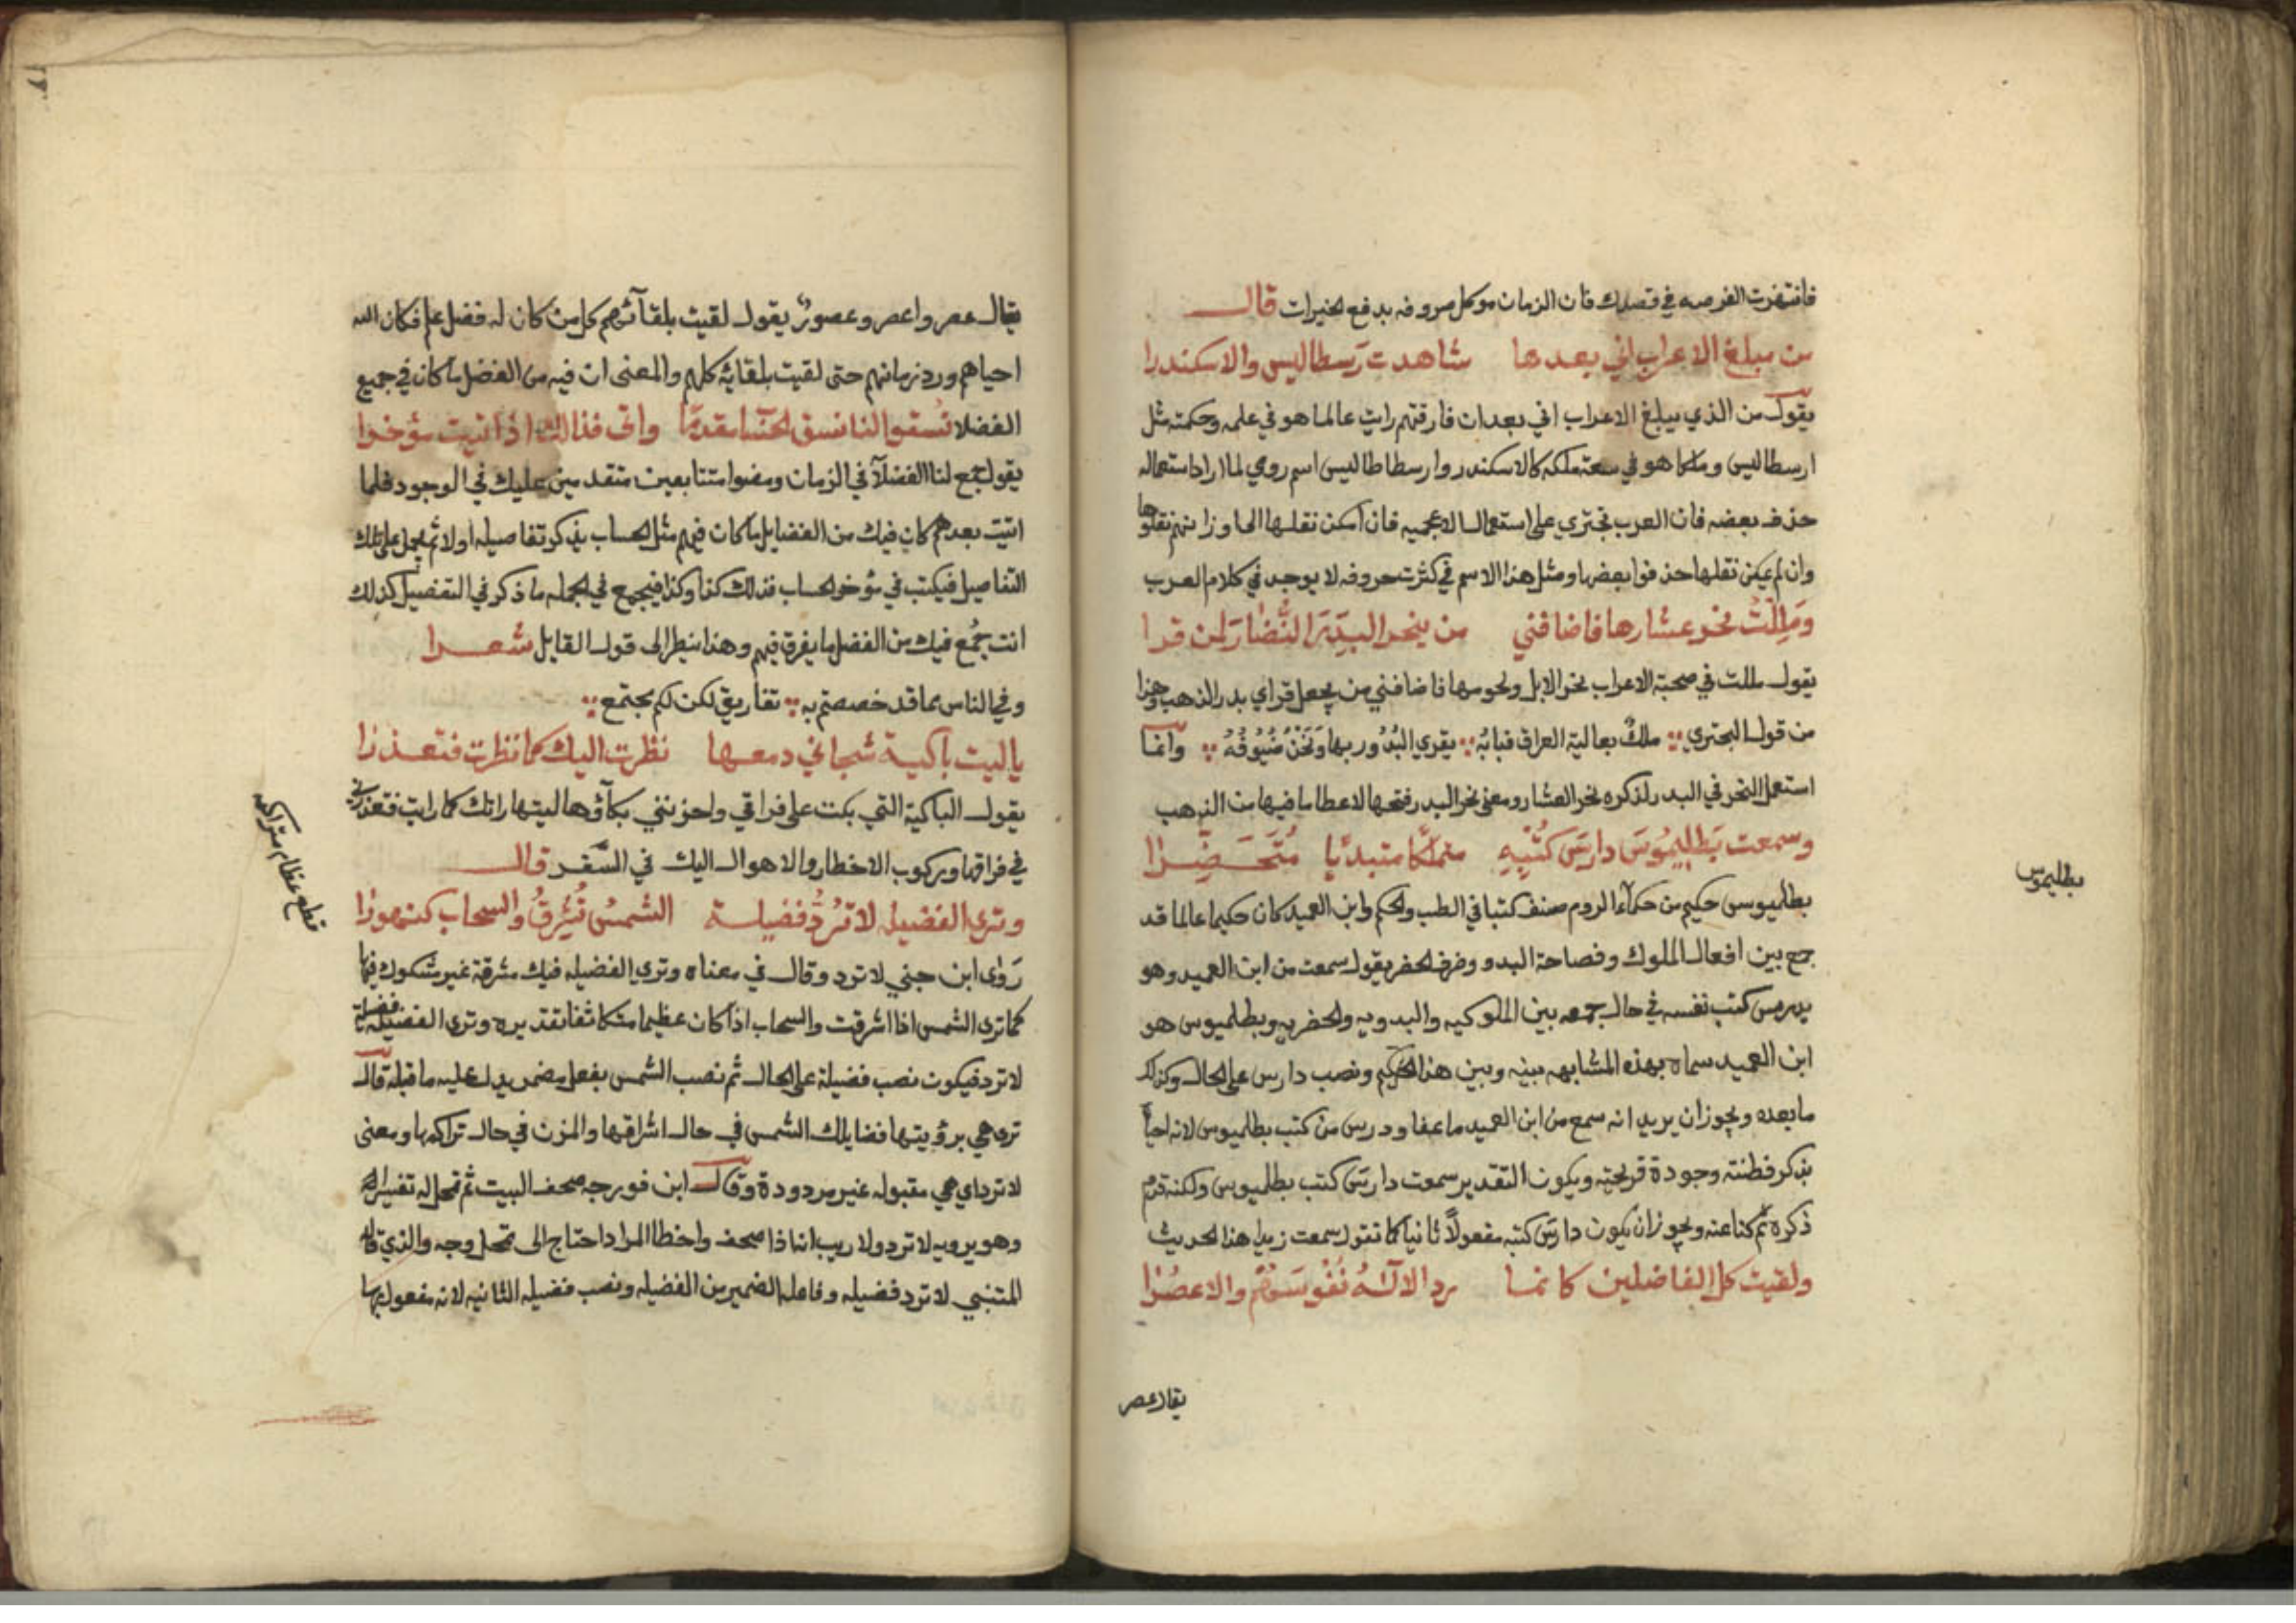 فانتهزت الفرصه في قصدك فان الزمان موكل صروفه بدفع الخيرات قال
من مبلغ الاعراب اني بعدها شاهدت رسطاليس والاسكندرا
يقول من الذي يبلغ الاعراب اني بعدان فارقتهم رايت عالما هو في علمه وحكمته مثل
ارسطاليس وملكا هو في سعة ملكه كالاسكندر وارسطاطاليس اسم رومي لما اراد استعماله
حذف بعضه فان العرب تجتري على استعمال الاعجميه فان امكن نقلها الى اوزانهم نقلوها
وان لم يمكن نقلها حذفوا بعضها ومثل هذا الاسم في كثرت حروفه لا يوجد في كلام العرب
وَمَلِلْتُ نحر عشارها فاضافني من ينحر البِدَرَ النُّضارَ لمن قرا
يقول مللت في صحبة الاعراب نحر الابل ولحومها فاضافني من يجعل قراي بدر الذهب وهذا
من قول البحتري ملكٌ بعالية العراق قبابُه يقري البُدُور بها وَنَحْنُ ضُيُوفُهُ وانما
استعمل النحر في البدر لذكره نحر العشار ومعنى نحر البدر فتحها لاعطا ما فيها من الذهب
وسمعت بَطليمُوسَ دارِسَ كُتْبِهِ متملّكا متبدّيا مُتَحَضِّرا
بطلميوس حكيم من حكمآء الروم صنف كتبا في الطب والحكم وابن العميد كان حكيما عالما قد
جمع بين افعال الملوك وفصاحة البدو وظرف الحضر يقول سمعت من ابن العميد وهو
يدرس كتب نفسه في حال جمعه بين الملوكيه والبدويه والحضريه وبطلميوس هو
ابن العميد سماه بهذه المشابهه بينه وبين هذا الحكيم ونصب دارس على الحال وكذلك
ما بعده ويجوز ان يريد انه سمع من ابن العميد ما عفا ودرس من كتب بطلميوس لانه احيا
بذكر فطنته وجودة قريحته ويكون التقدير سمعت دارسَ كتب بطلميوس ولكنه قدم
ذكره ثم كنا عنه ويجوز ان يكون دارسَ كتبه مفعولاً ثانيا كما تقول سمعت زيدا هذا الحديث
ولقيت كل الفاضلين كانما رد الالٰهُ نُفُوسَهُم والاعصُرا
يقال عصر
بطليموس
يقال عصر واعصر وعصور يقول لقيت بلقآئهم كل من كان له فضل علم فكان الله
احياهم ورد زمانهم حتى لقيت بلقايه كلهم والمعنى ان فيه من الفضل ما كان في جميع
الفضلا نُسقوا لنا نسق الحساب مقدّما واتى فذالك اذ اتيت مؤخرا
يقول جمع لنا الفضلآ في الزمان ومضوا متتابعين متقدمين عليك في الوجود فلما
اتيت بعدهم كان فيك من الفضايل ما كان فيهم مثل الحساب يذكر تفاصيله اولا ثم يجمل على تلك
التفاصيل فيكتب في مؤخر الحساب فذلك كذا وكذا فيجمع في الجمله ما ذكر في التفصيل كذلك
انت جُمع فيك من الفضل ما يفرق فيهم وهذا ينظر الى قول القايل شعرا
وفي الناس مما قد خصصتم به تفاريق لكن لكم مجتمع
ياليت باكية شجاني دمعها نظرت اليك كما نظرت فتعذرا
يقول الباكية التي بكت على فراقي واحزنني بكآؤها ليتها راتك كما رايت فتعذرني
في فراقها وبركوب الاخطار والاهوال اليك في السَّفر قال
وترى الفضيله لا تَرُدُّ فضيلة الشمسَ تُشرِقُ والسحاب كنهورا
رَوٰى ابن جني لا ترد وقال في معناه وترى الفضيله فيك مشرقة غير مشكوك فيها
كما ترى الشمس اذا اشرقت والسحاب اذا كان عظيما متكاثفا تقديره وترى الفضيله فضيلة
لا ترد فيكون نصب فضيلة على الحال ثم نصب الشمس بفعل مضمر يدل عليه ما قبله قال
ترى هي برؤيتها فضايلك الشمس في حال اشراقها والمزن في حال تراكمها ومعنى
لا ترد اي هي مقبوله غير مردودة وقال ابن فورجه صحف البيت ثم تمحل له تفسيرا
وهو يرويه لا ترد ولا ريب انه اذا صحف واخطا المراد احتاج الى تمحل وجه والذي قاله
المتنبي لا ترد فضيله وفاعله الضمير من الفضيله ونصب فضيله الثانيه لانه مفعول بها
قطع عظام متراكمه